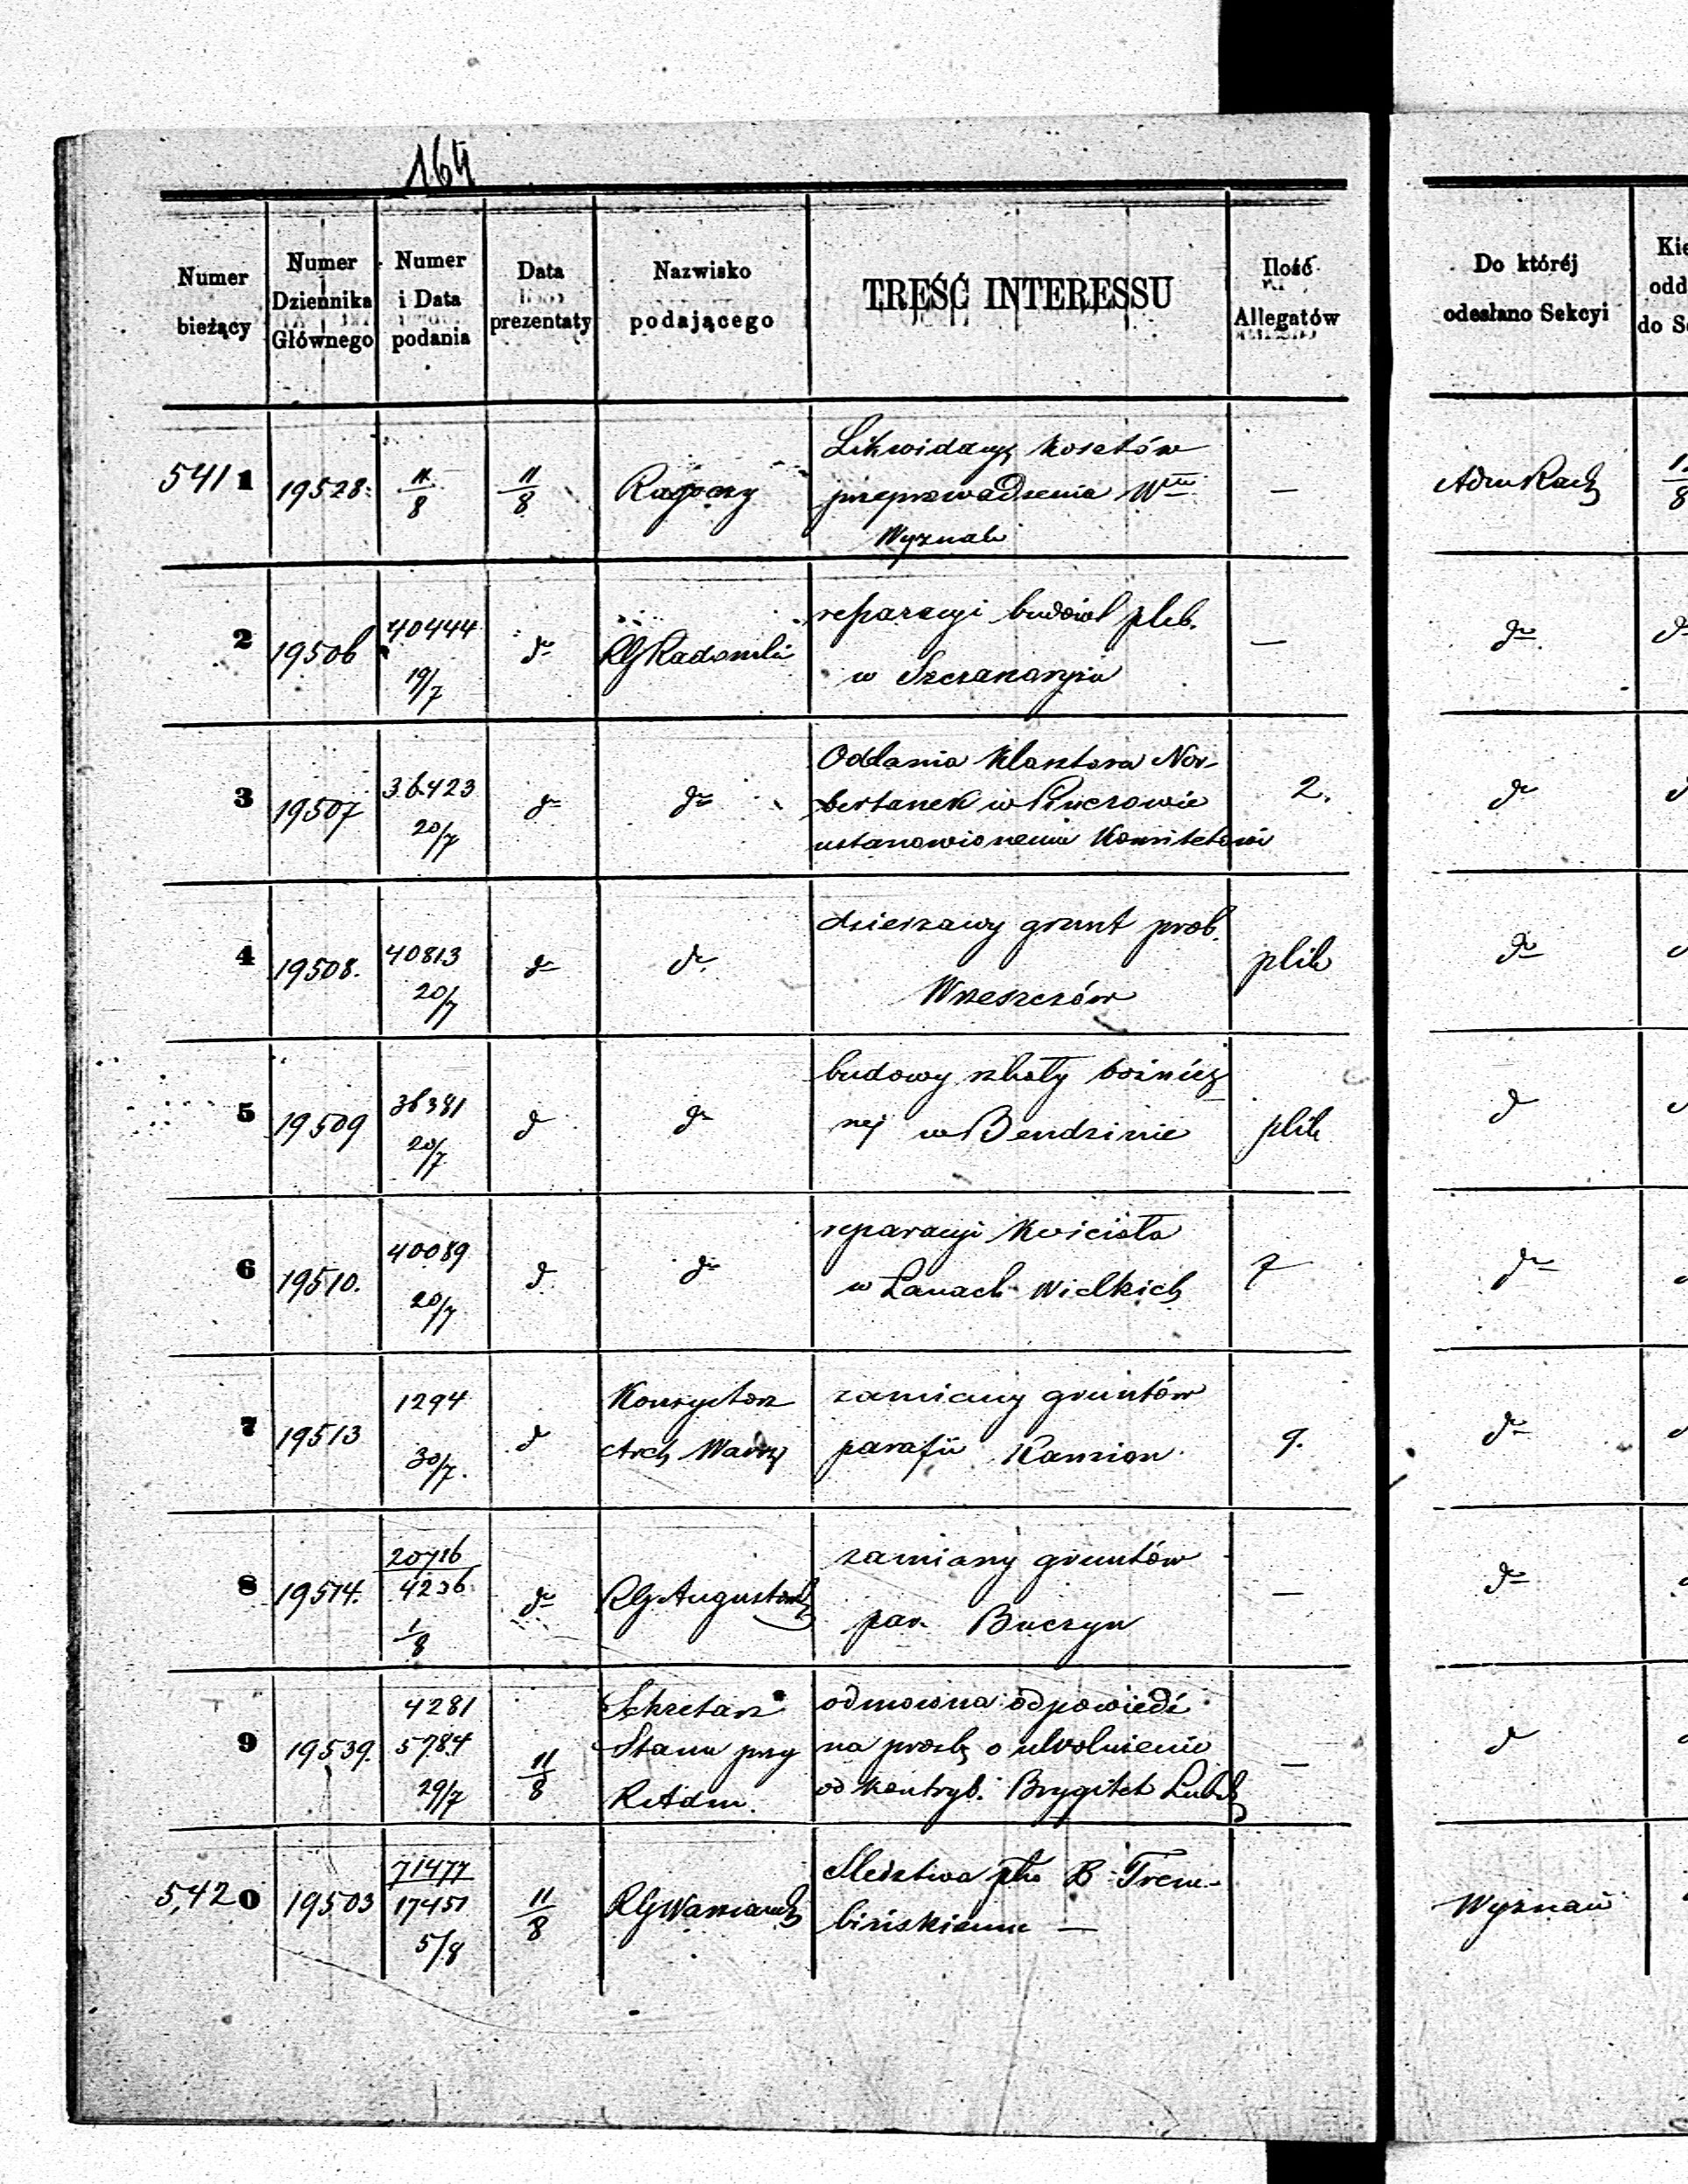 164
Numer bieżący
Numer Dziennika Głównego
Numer i Data podania
Data prezentaty
Nazwisko podającego
TREŚĆ INTERESSU
Ilość Allegatów
Do któréj odesłano Sekcyi
5411 19528 11/8 11/8 Likwidacyą kosztów
przeprowadzenia —
2 19506 40444 19/7 do RG Radomski reparacyi budowl pleb. —
w do
3 19507 36423 20/7 do do Oddania Klasztoru Nor-
bertanek w Pinczowie 2. do
ustanowionemu Komitetowi
4 19508. 40813 20/7 do do dzierzawy grunt prob. plik do
Wrzeszczów
5 19509 36381 20/7 d do budowy szkoły bożnicz
nej w Bendzinie plik d
6 19510. 40089 20/7 d do reparacyi Kościoła
w Łanach Wielkich 7 do
7 19513 1294 30/7. d Konsystorz zamiany gruntów
Arch Warsz parafii Kamion 9. do
8 19514. 20716 4236 1/8 do RG Augustowski zamiany gruntów —
par. Buczyn do
9 19539. 4281 5784 29/7 11/8 Sekretarz odmowna odpowiedź
Stanu przy na prozbę o uwolnienie —
RAdm. od kontryb. Brygitek Lubel d
5,420 19503 71477 17451 5/8 11/8 RG Warszawski Sledztwa pko X Trem-
binskiemu — Wyznań